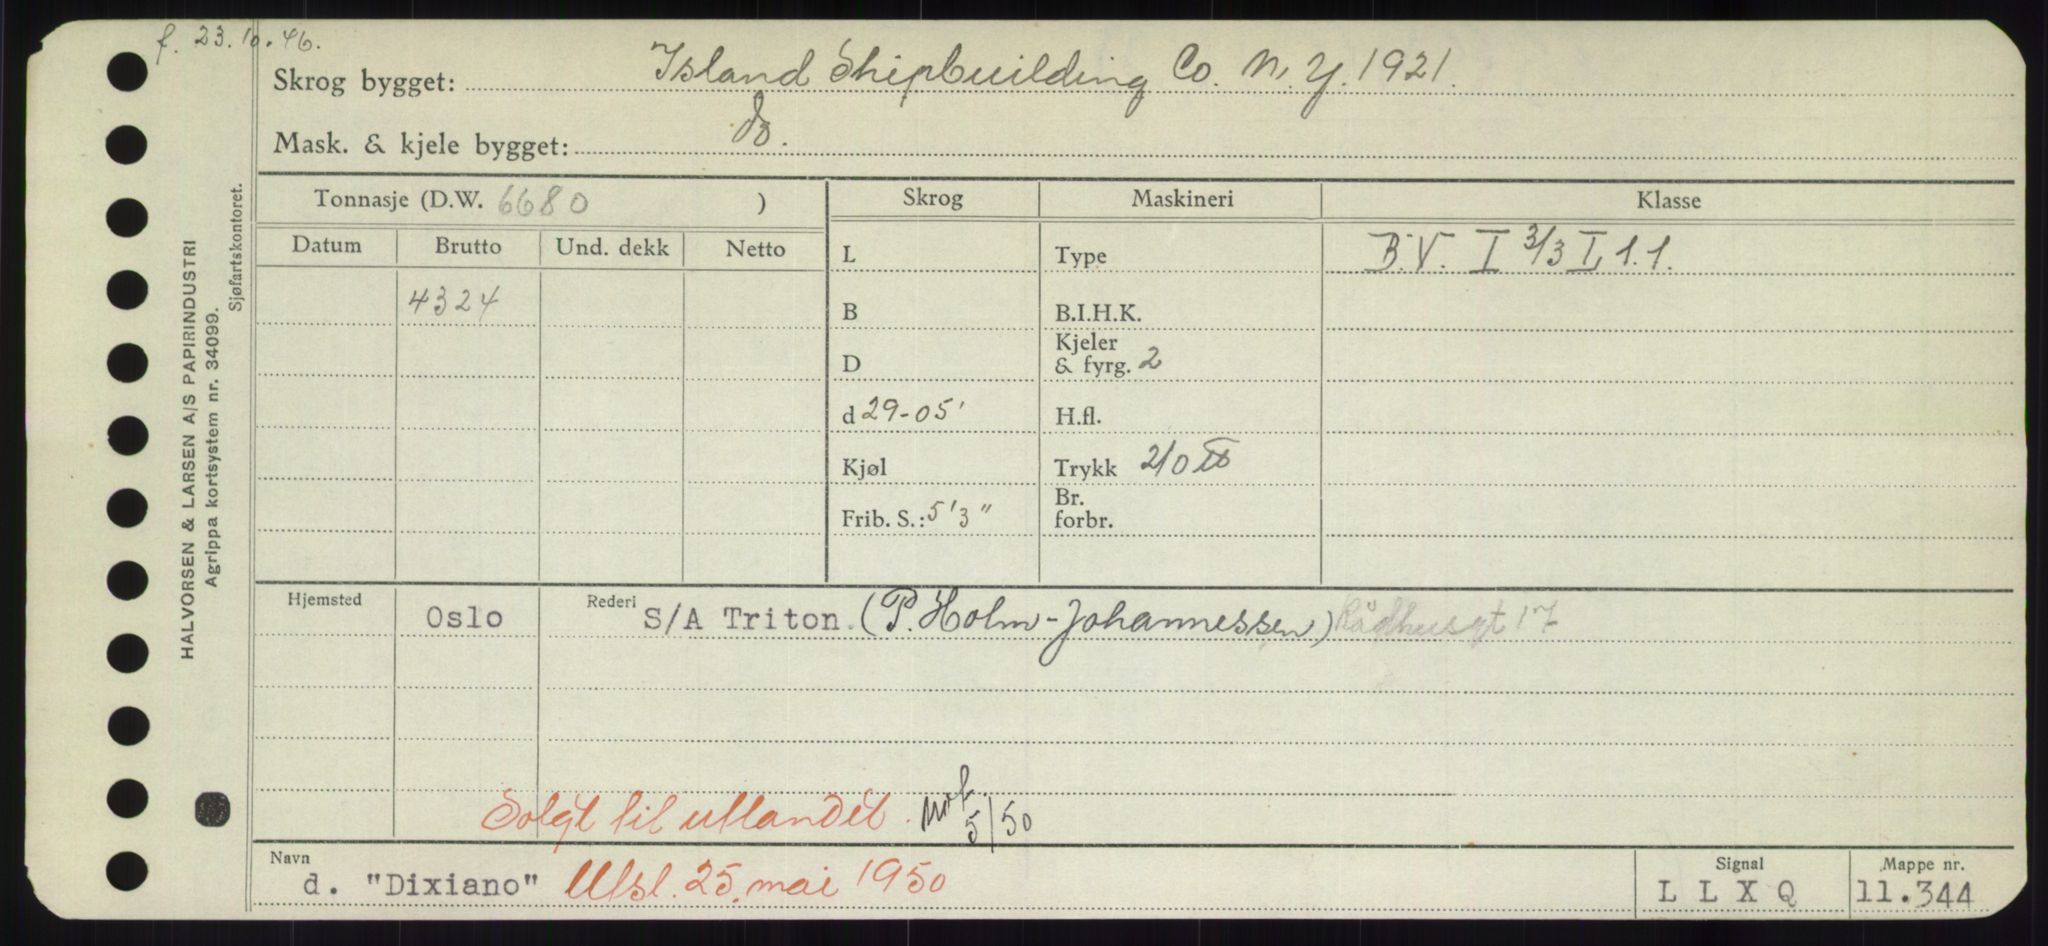 f. 23.10.46.
Skrog bygget: Island Shipbuilding Co. N.Y. 1921.
Mask. & kjele bygget: do.
Tonnasje (D.W. 6680 )
Skrog Maskineri Klasse
Datum Brutto Und. dekk Netto
L Type B.V. I 3/3 L 1.1.
4324
B B.I.H.K.
D Kjeler & fyrg. 2
d 29-05' H.fl.
Kjøl Trykk 210 lb
Frib. S.: 5'3" Br. forbr.
Hjemsted Oslo Rederi S/A Triton. (P. Holm-Johannessen) Rådhusgt 17
Solgt til utlandet. 5/50
Navn d. "Dixiano" Utsl. 25. mai 1950
Signal L L X Q
Mappe nr. 11.344
HALVORSEN & LARSEN A/S PAPIRINDUSTRI
Agrippa kortsystem nr. 34099.
Sjøfartskontoret.